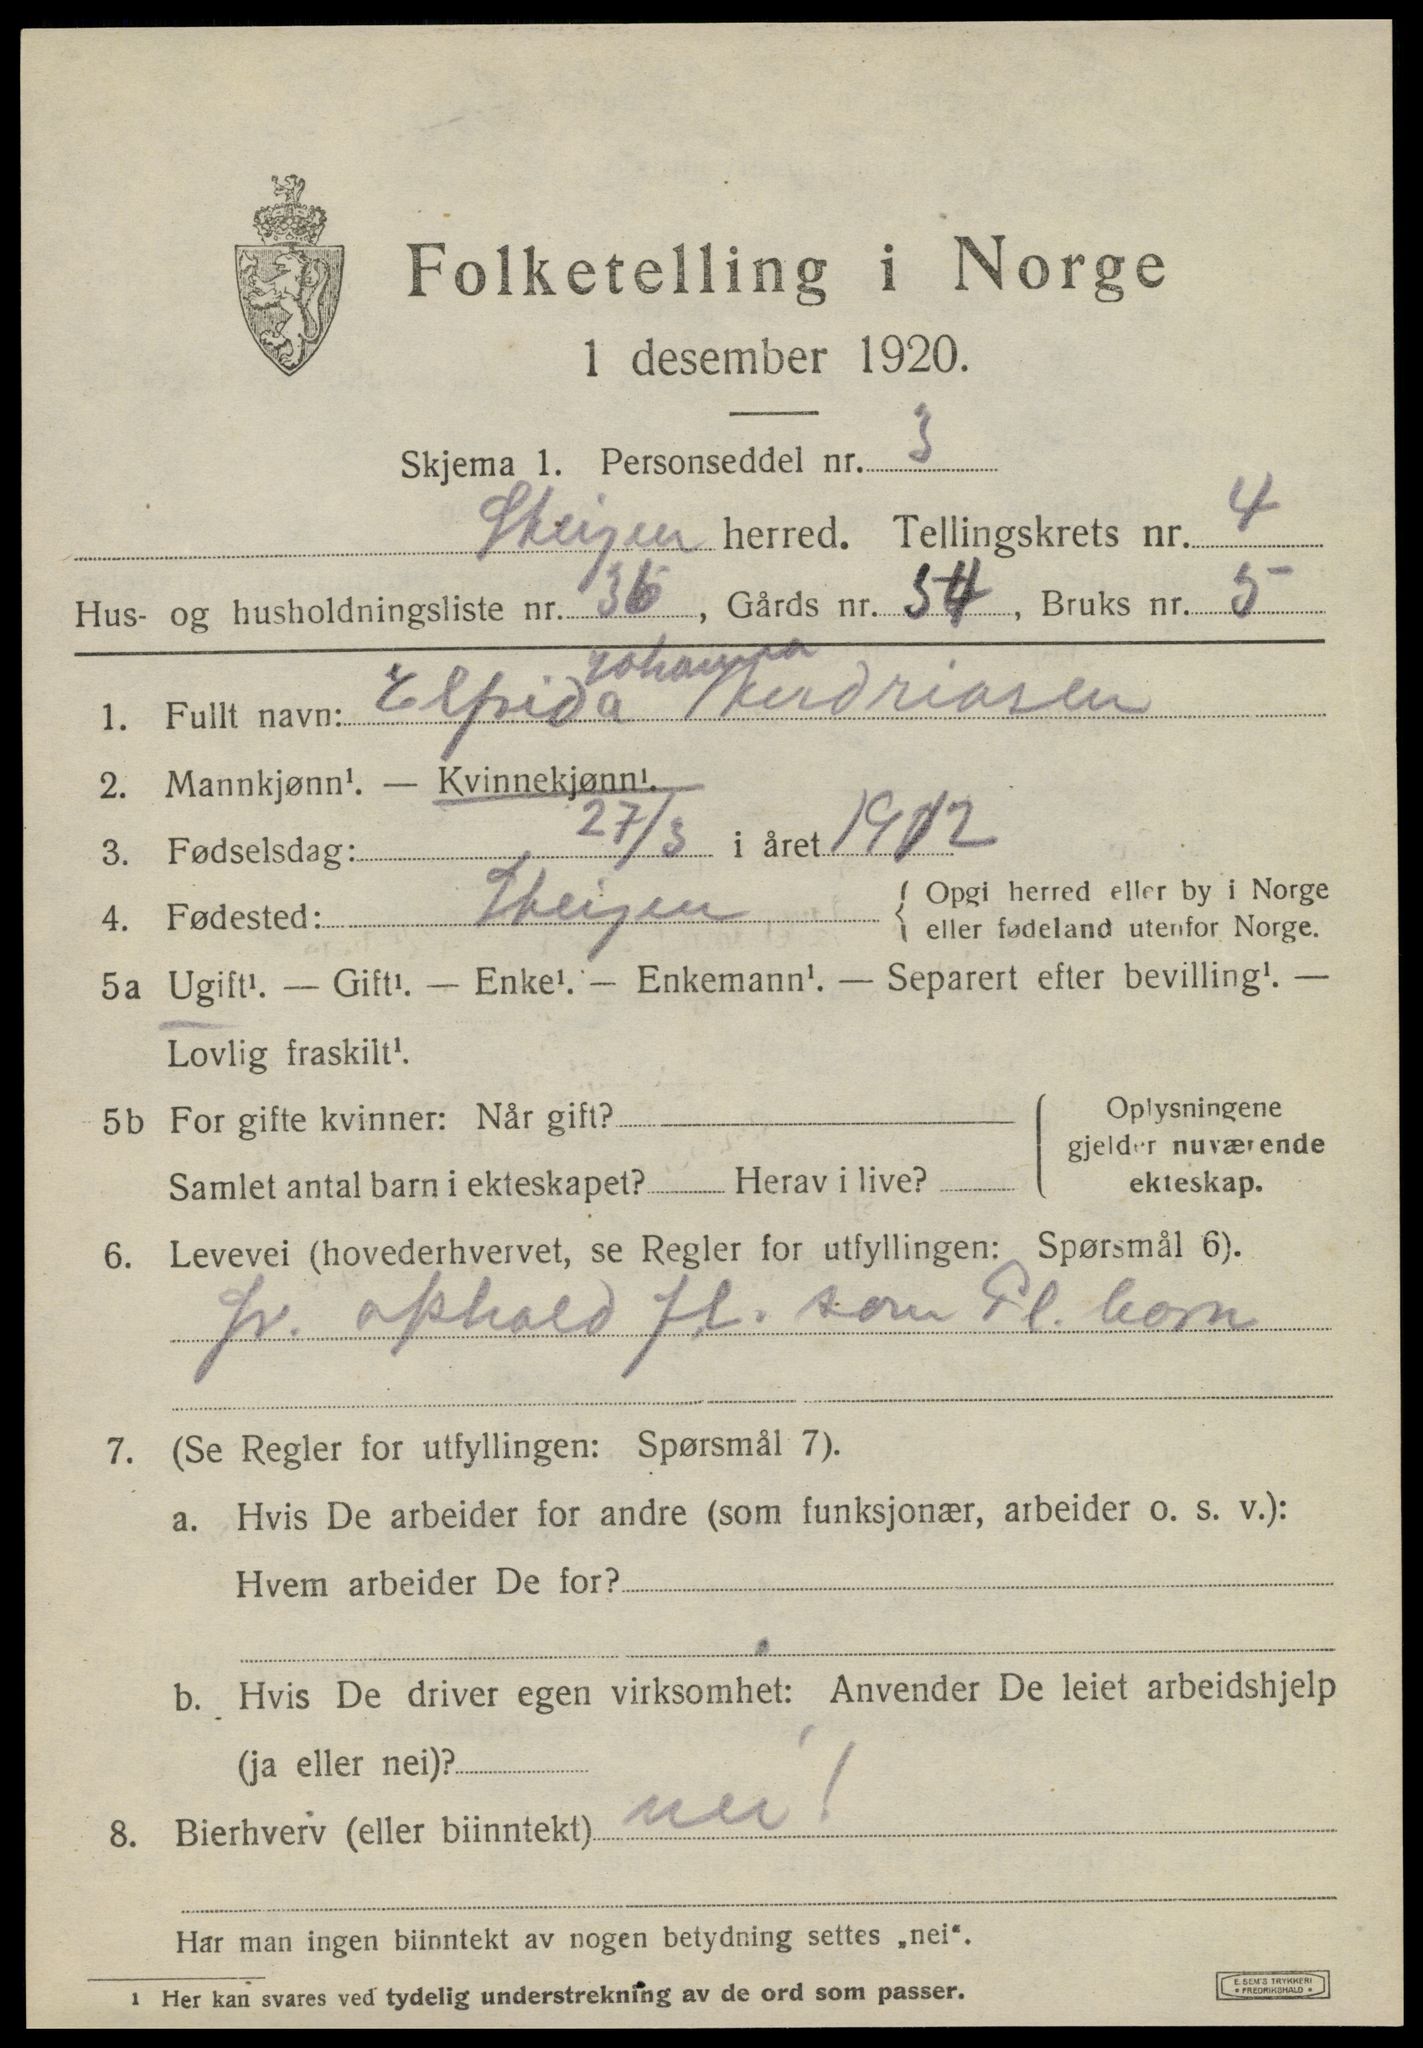 Folketelling i Norge
1 desember 1920.
Skjema 1. Personseddel nr. 3
Steigen herred. Tellingskrets nr. 4
Hus- og husholdningsliste nr. 36, Gårds nr. 54, Bruks nr. 5
Johanna
1. Fullt navn: Elfrida Hendriksen
2. Mannkjønn¹. — Kvinnekjønn¹.
3. Fødselsdag: 27/3 i året 1912
4. Fødested: Steigen { Opgi herred eller by i Norge
eller fødeland utenfor Norge.
5a Ugift¹. — Gift¹. — Enke¹. — Enkemann¹. — Separert efter bevilling¹. —
Lovlig fraskilt¹.
5b For gifte kvinner: Når gift?
Samlet antal barn i ekteskapet? Herav i live?
Oplysningene
gjelder nuværende
ekteskap.
6. Levevei (hovederhvervet, se Regler for utfyllingen: Spørsmål 6).
fr. ophold fl. som Pl. barn
7. (Se Regler for utfyllingen: Spørsmål 7).
a. Hvis De arbeider for andre (som funksjonær, arbeider o. s. v.):
Hvem arbeider De for?
b. Hvis De driver egen virksomhet: Anvender De leiet arbeidshjelp
(ja eller nei)?
8. Bierhverv (eller biinntekt) nei!
Har man ingen biinntekt av nogen betydning settes „nei“.
1 Her kan svares ved tydelig understrekning av de ord som passer.
E. SEM'S TRYKKERI
• FREDRIKSHALD •